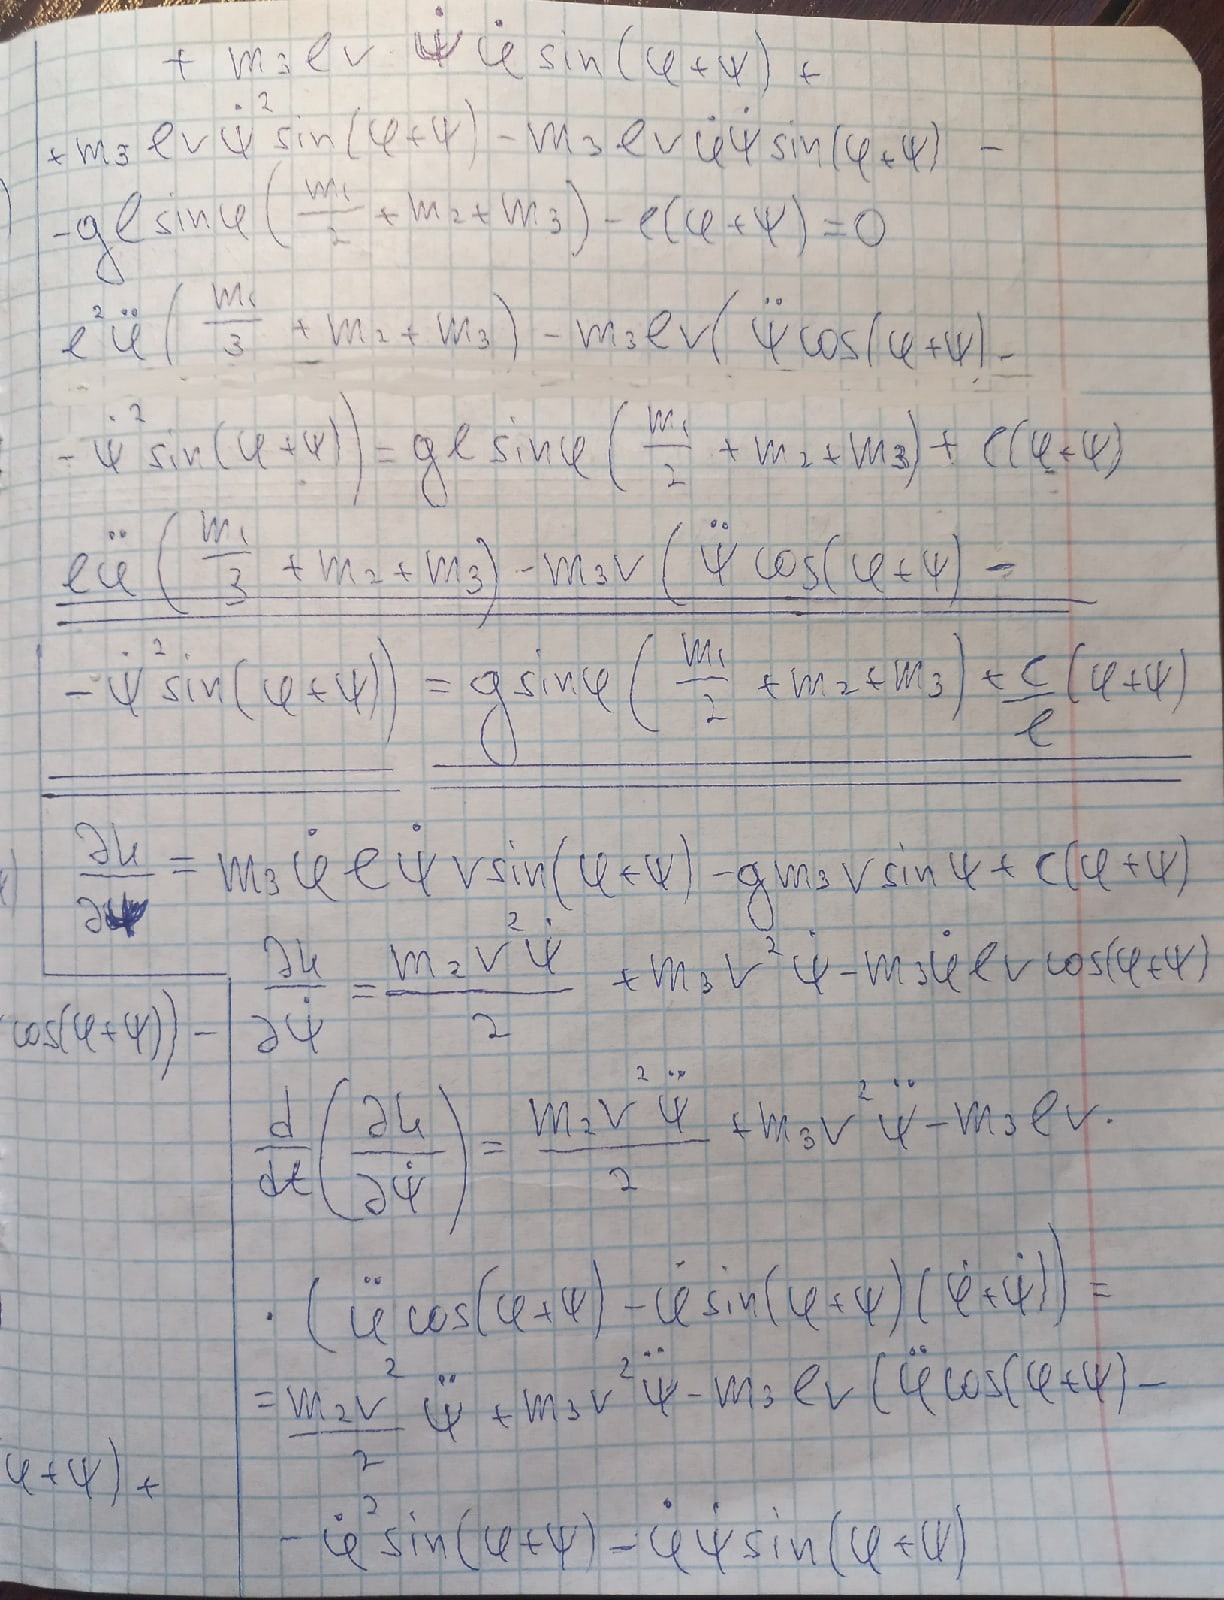 + m₃ℓr·ψ̇φ̇ sin(φ+ψ) +
+ m₃ℓrψ̇² sin(φ+ψ) − m₃ℓrφ̇ψ̇ sin(φ+ψ) −
− gℓ sinφ (m₁/2 + m₂ + m₃) − c(φ+ψ) = 0
ℓ²φ̈ (m₁/3 + m₂ + m₃) − m₃ℓr(ψ̈ cos(φ+ψ) −
− ψ̇² sin(φ+ψ)) = gℓ sinφ (m₁/2 + m₂ + m₃) + c(φ+ψ)
ℓφ̈ (m₁/3 + m₂ + m₃) − m₃r (ψ̈ cos(φ+ψ) −
− ψ̇² sin(φ+ψ)) = g sinφ (m₁/2 + m₂ + m₃) + c/ℓ (φ+ψ)
∂L/∂ψ = m₃φ̇ℓψ̇r sin(φ+ψ) − gm₃r sinψ + c(φ+ψ)
∂L/∂ψ̇ = m₂r²ψ̇/2 + m₃r²ψ̇ − m₃φ̇ℓr cos(φ+ψ)
cos(φ+ψ)) −
d/dt (∂L/∂ψ̇) = m₂r²ψ̈/2 + m₃r²ψ̈ − m₃ℓr·
· (φ̈ cos(φ+ψ) − φ̇ sin(φ+ψ)(φ̇+ψ̇)) =
= m₂r²/2 ψ̈ + m₃r²ψ̈ − m₃ℓr (φ̈ cos(φ+ψ) −
φ+ψ) +
− φ̇² sin(φ+ψ) − φ̇ψ̇ sin(φ+ψ)